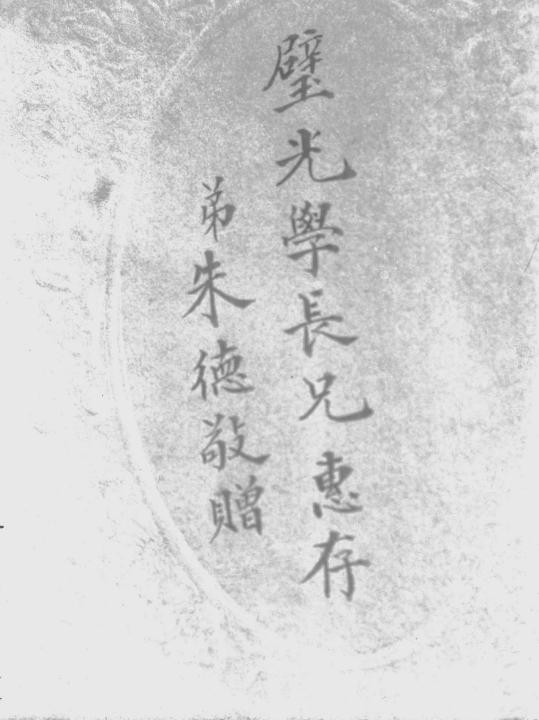 璧光學長兄惠存
弟朱德敬贈